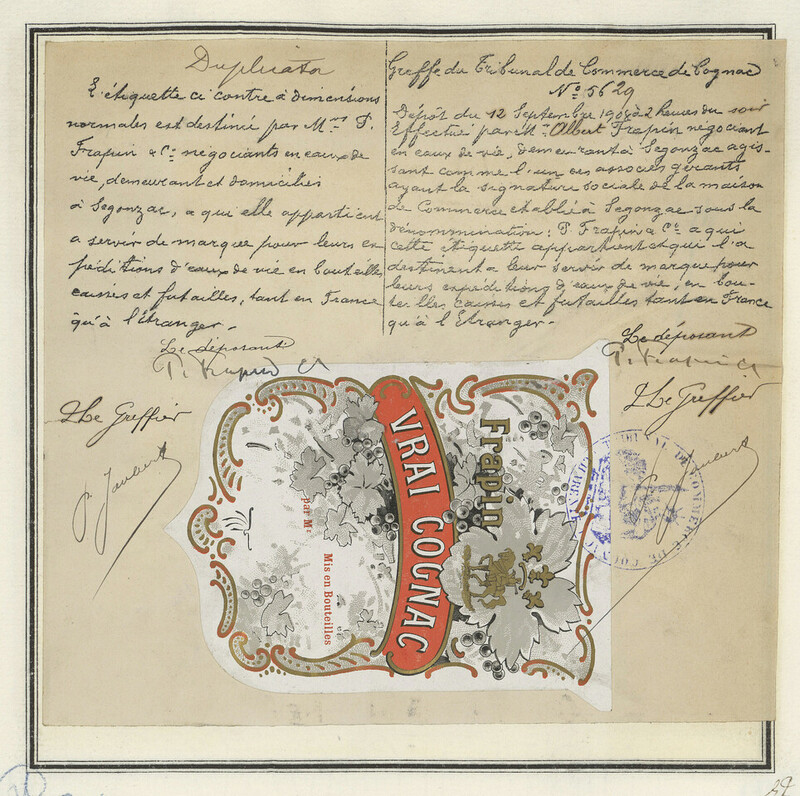 Duplicata
L'étiquette ci contre à dimensions
normales est destinée par Mrs P.
Frapin & Cie négociants en eaux de
vie, demeurant et domiciliés
à Segonzac, a qui elle appartient
a servir de marque pour leurs ex
péditions d'eaux de vie en bouteilles
caisses et futailles, tant en France
qu'à l'étranger.
Le déposant
P. Frapin & Cie
Le Greffier
Greffe du Tribunal de Commerce de Cognac
No 5629
Dépôt du 12 Septembre 1908 à 2 heures du soir
Effectué par M. Albert Frapin négociant
en eaux de vie, demeurant à Segonzac agis-
sant comme l'un des associés gérants
ayant la signature sociale de la maison
de Commerce etablie à Segonzac sous la
dénommination: P. Frapin & Cie a qui
cette étiquette appartient et qui l'a
destinent a leur servir de marque pour
leurs expeditions d'eaux de vie, en bou-
teilles caisses et futailles tant en France
qu'à l'Etranger.
Le déposant
P. Frapin & Cie
Le Greffier
Frapin
VRAI COGNAC
Mis en Bouteilles
par Mr
TRIBUNAL DE COMMERCE DE COGNAC